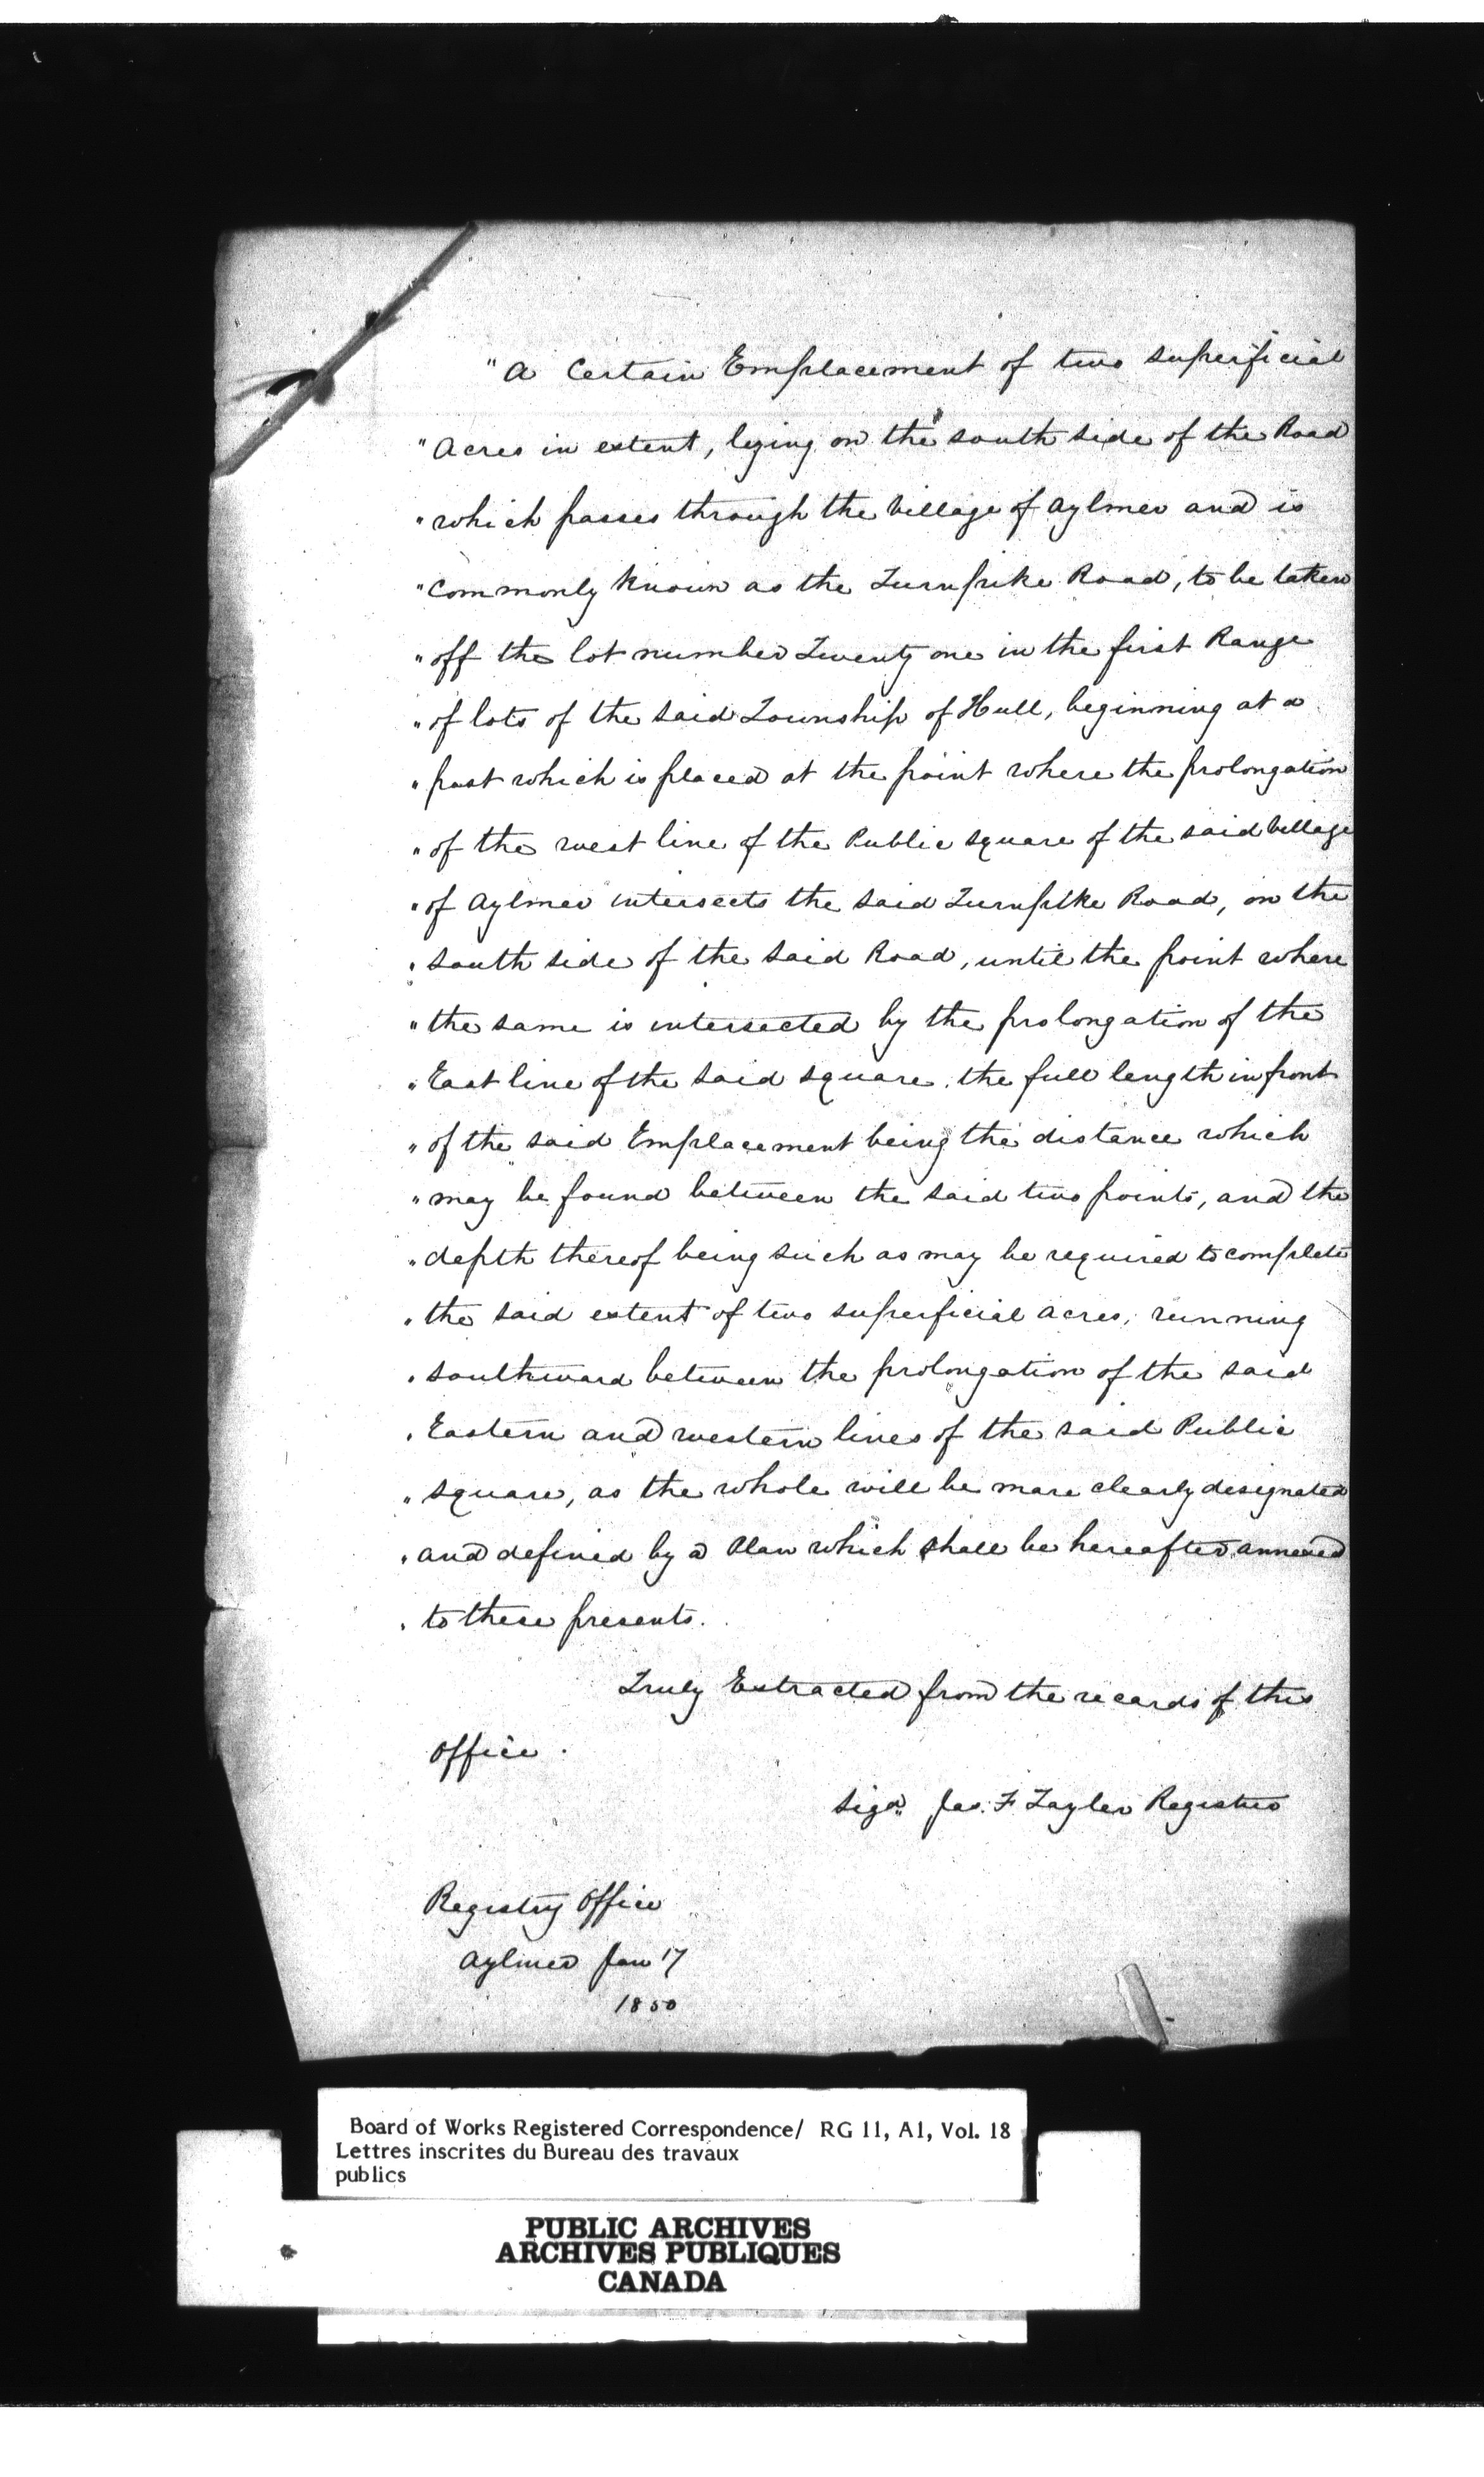 "A Certain Emplacement of two superficial
"Acres in extent, lying on the south side of the Road
"which passes through the village of Aylmer and is
"commonly known as the Turnpike Road, to be taken
"off the lot number Twenty one in the first Range
"of lots of the said Township of Hull, beginning at a
"post which is placed at the point where the prolongation
"of the west line of the Public square of the said village
"of Aylmer intersects the said Turnpike Road, on the
"south side of the said Road, until the point where
"the same is intersected by the prolongation of the
"East line of the said square, the full length in front
"of the said Emplacement being the distance which
"may be found between the said two points, and the
"depth thereof being such as may be required to complete
"the said extent of two superficial acres, running
"southward between the prolongation of the said
"Eastern and western lines of the said Public
"square, as the whole will be more clearly designated
"and defined by a Plan which shall be hereafter annexed
"to these presents.
Truly Extracted from the records of this
Office.
Sigd. Jas. F. Taylor Registrar
Registry Office
Aylmer Jan 17
1850
Board of Works Registered Correspondence/ RG 11, A1, Vol. 18
Lettres inscrites du Bureau des travaux
publics
PUBLIC ARCHIVES
ARCHIVES PUBLIQUES
CANADA